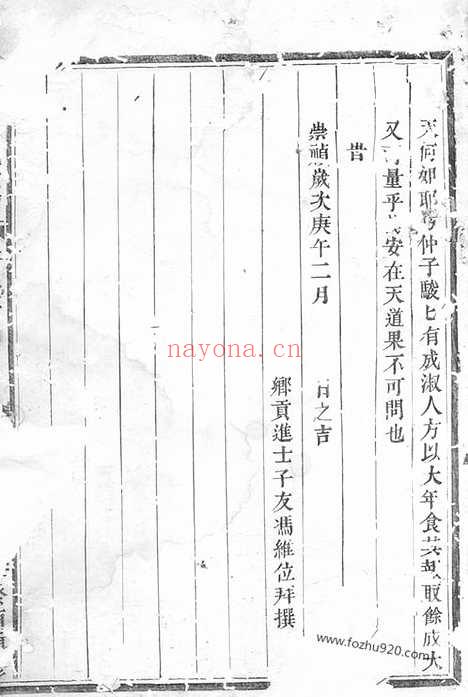 天何如耶 仲子駿七有成淑人方以大年食其 取餘成大
又 量乎 安在天道果不可問也
昔
崇禎歲次庚午二月 之吉
鄉貢進士子友馮維位拜撰
nayona.cn
www.fozhu920.com